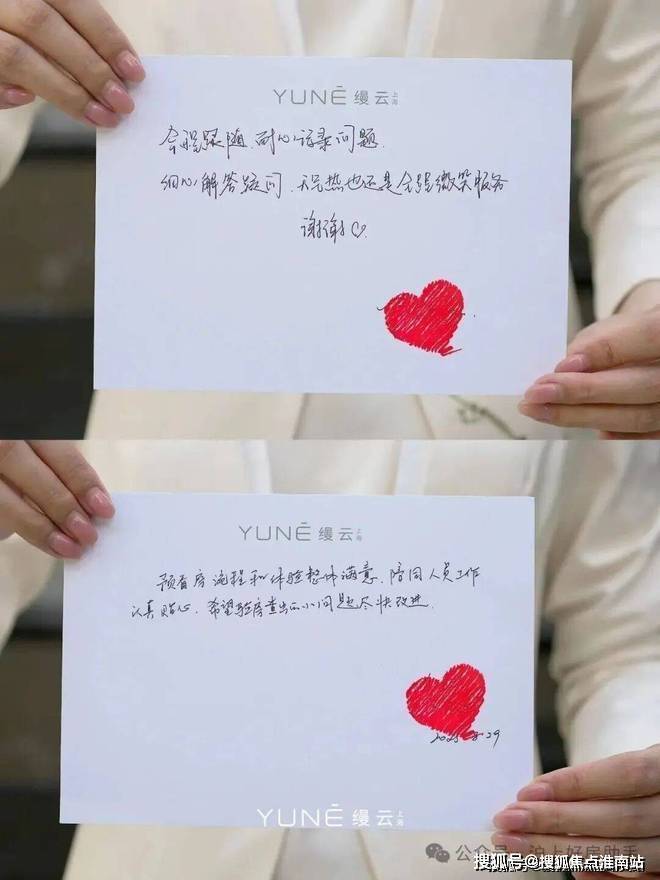 YUNÉ 缦云 上海
全程跟随、耐心记录问题
细心解答疑问、天气热也还是全程微笑服务
谢谢♡
YUNÉ 缦云 上海
预看房流程和体验整体满意、陪同人员工作
认真贴心、希望验房查出的小问题尽快改进
29
YUNÉ 缦云 上海
公众号 沪上好房助手
搜狐号@搜狐焦点淮南站